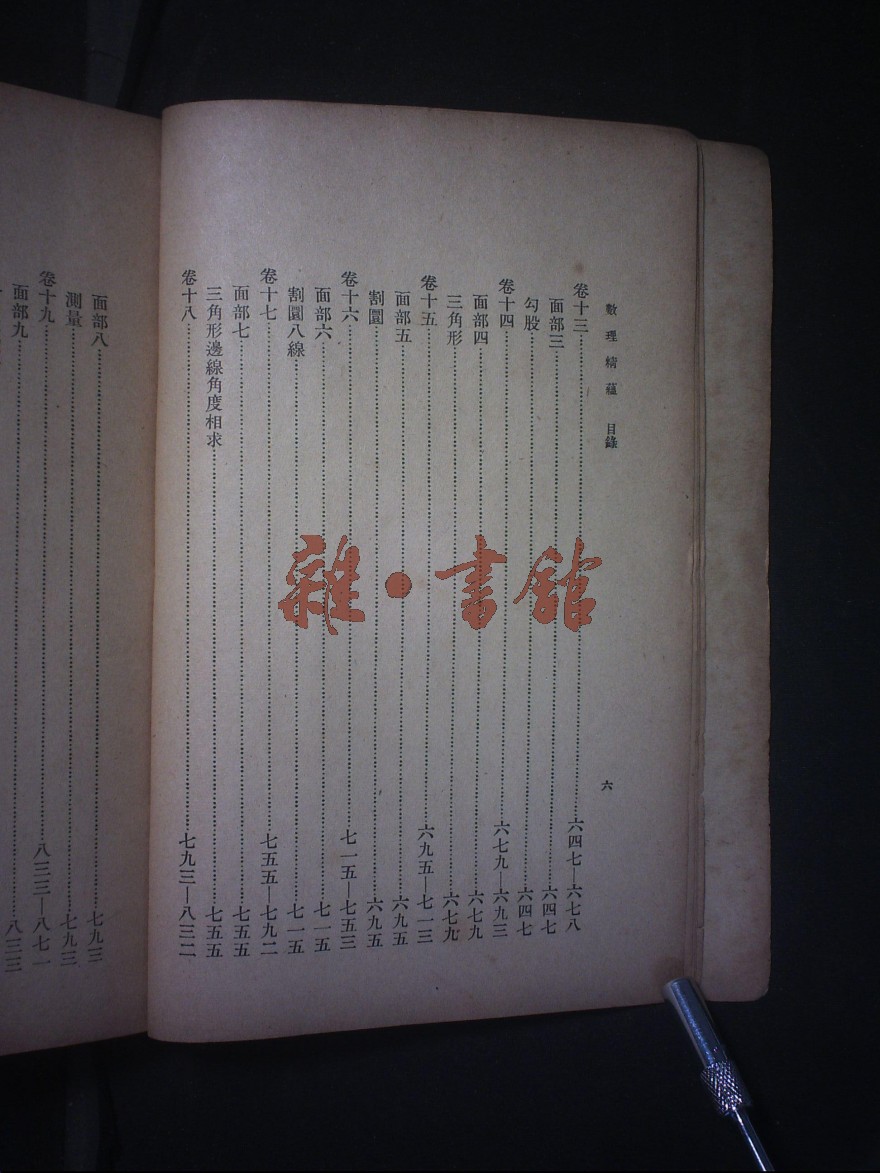 數理精蘊 目錄
六
卷十三 六四七—六七八
面部三 六四七
勾股 六四七
卷十四 六七九—六九三
面部四 六七九
三角形 六七九
卷十五 六九五—七一三
面部五 六九五
割圜 六九五
卷十六 七一五—七五三
面部六 七一五
割圜八線 七一五
卷十七 七五五—七九二
面部七 七五五
三角形邊線角度相求 七五五
卷十八 七九三—八三二
面部八 七九三
測量 七九三
卷十九 八三三—八七一
面部九 八三三
雜·書館